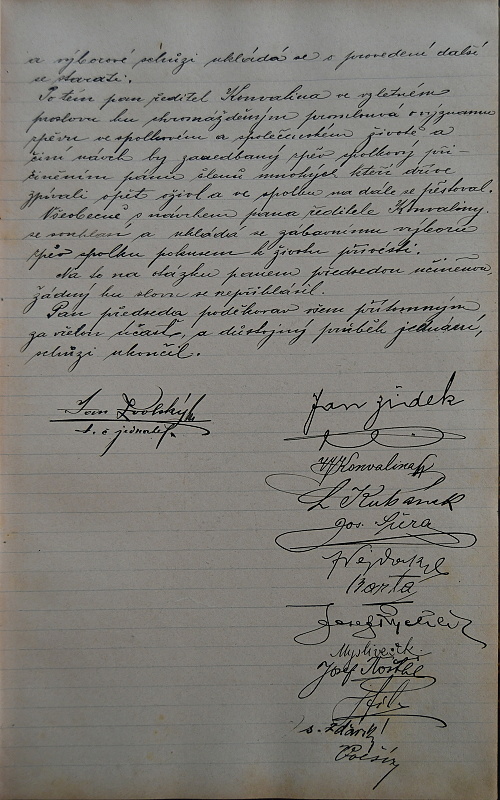 a výborové schůzi ukládá se o provedení další
se starati.
Po tém pan ředitel Konvalina ve vzletném
proslovu ku shromážděným promlouvá o významu
zpěvu ve spolkovém a společenském životě a
činí návrh by zanedbaný zpěv spolkový při-
činěním pánů členů mnohých kteří dříve
zpívali opět oživl a ve spolku na dále se pěstoval.
Všeobecně s návrhem pana ředitele Konvaliny
se souhlasí a ukládá se zábavnímu výboru
zpěv spolku pokusem k životu přivésti.
Na to na otázku panem předsedou učiněnou
žádný ku slovu se nepřihlásil.
Pan předseda poděkovav všem přítomným
za četnou účast, a důstojný průběh jednání,
schůzi ukončil.
Jan Zvolský
t. č. jednatel.
Jan Žídek
Konvalina
L Kubánek
Jos. Šíra
Nejdukl
Bárta
Josef
Mysliveček
Josef
s. Žďárský